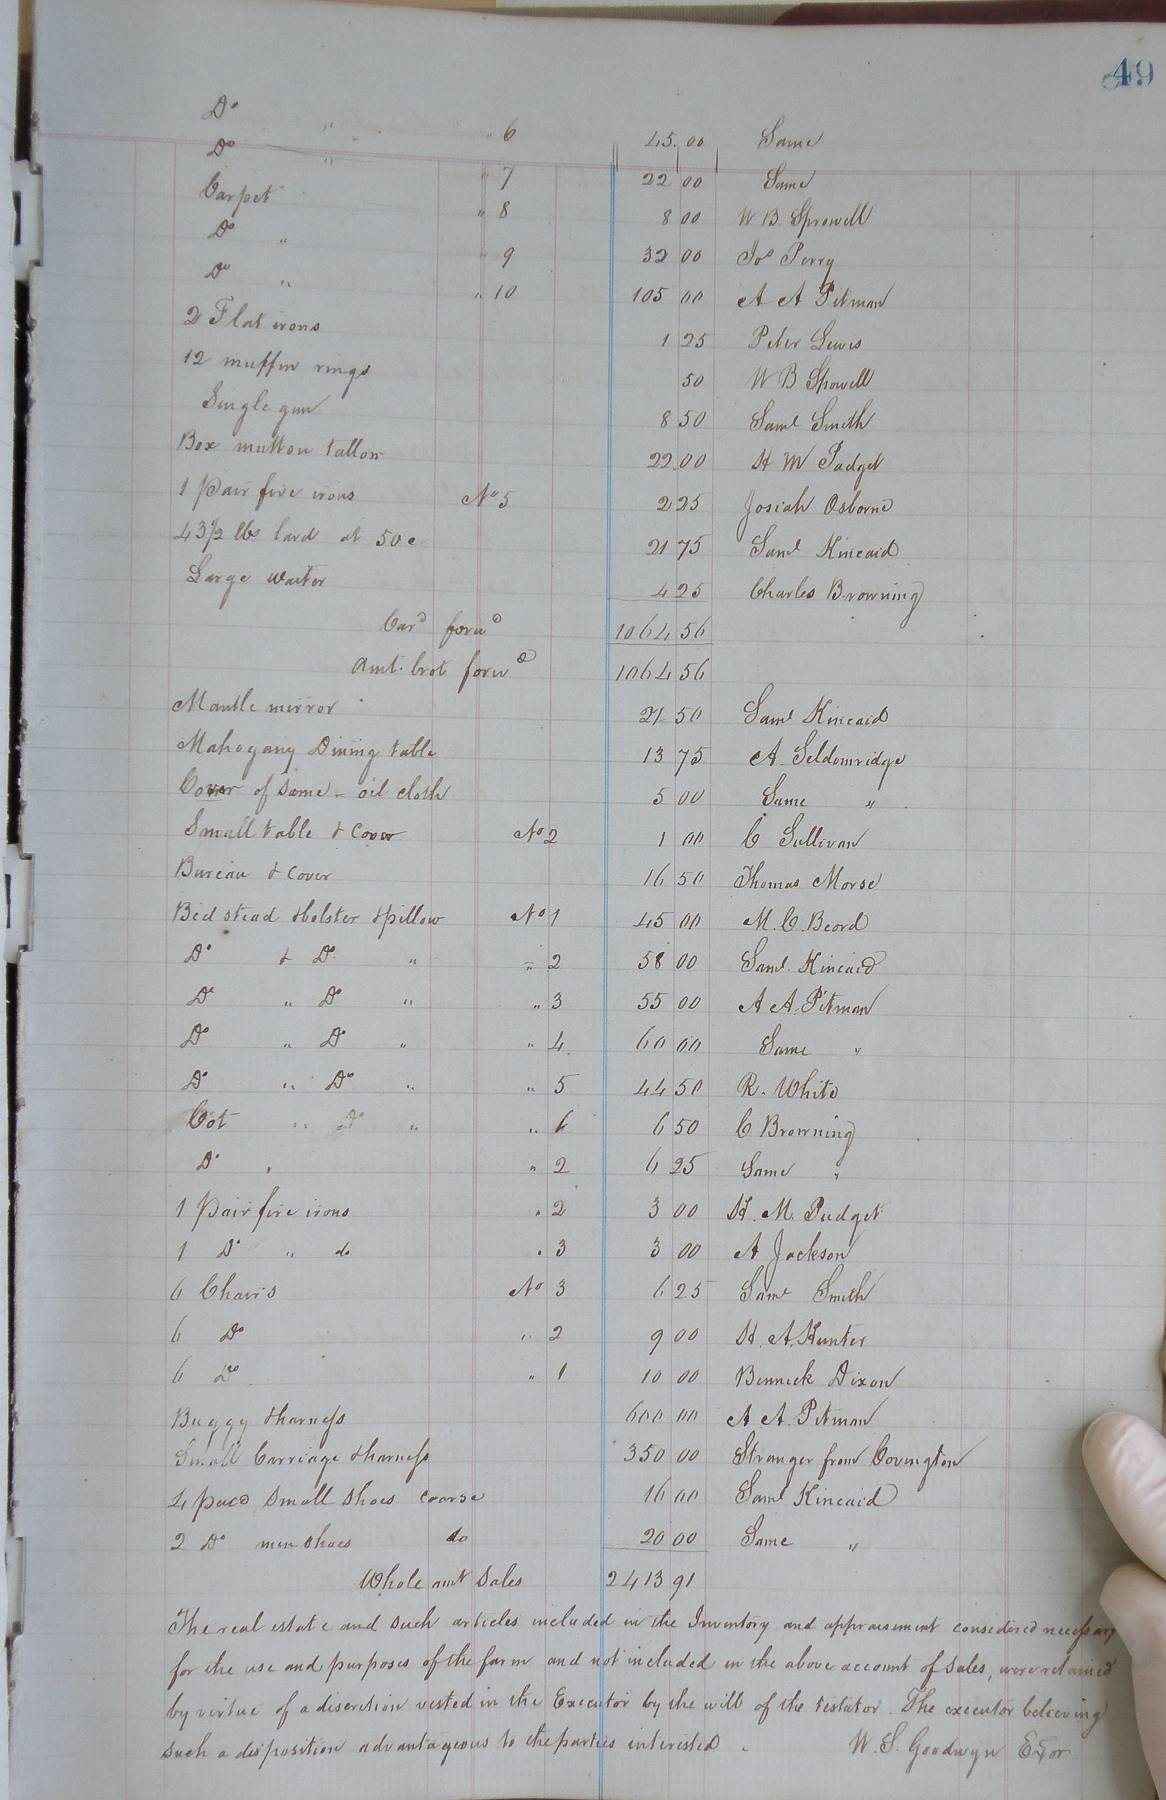 49
Do " " 6 45.00 Same
Do " " 7 22 00 Same
Carpet " 8 8 00 W B. Sprowell
Do " " 9 32 00 Jos Perry
Do " " 10 105 00 A A Pitman
2 Flat irons 1 25 Peter Lewis
12 muffin rings 50 W B Sprowell
Single gun 8 50 Saml Smith
Box mutton tallow 22.00 H M Padget
1 pair fire irons No 5 2 25 Josiah Osborne
43½ lbs lard at 50c 21 75 Saml Kincaid
Large waiter 4 25 Charles Browning
Card forwd 1064 56
Amt. brot forwd 1064 56
Mantle mirror 21 50 Saml Kincaid
Mahogany Dining table 13 75 A. Seldomridge
Cover of Same - oil cloth 5 00 Same "
Small table & Cover No 2 1 00 C Sullivan
Bureau & Cover 16 50 Thomas Morse
Bedstead & bolster & pillow No 1 45 00 M. C. Beard
Do & Do " " 2 58 00 Saml. Kincaid
Do " Do " " 3 55 00 A A. Pitman
Do " Do " " 4. 60 00 Same "
Do " Do " " 5 44 50 R. White
Cot " Do " " 6 50 C Browning
Do " " 2 6 25 Same "
1 pair fire irons " 2 3 00 H. M. Padget
1 Do " do " 3 3 00 A Jackson
6 Chairs No 3 6 25 Saml Smith
6 Do " 2 9 00 H. A. Hunter
6 Do " 1 10 00 Dixon
Buggy & harness 600 00 A A. Pitman
Small Carriage & harness 350 00 Stranger from Covington
4 pacs Small Shoes coarse 16 00 Saml Kincaid
2 Do men shoes do 20 00 Same "
Whole amt Sales 2413 91
The real estate and such articles included in the Inventory and appraisement considered necessary
for the use and purposes of the farm and not included in the above account of Sales, were retained
by virtue of a discretion vested in the Executor by the will of the testator. The executor believing
such a disposition advantageous to the parties interested. W. S. Goodwyn Exor